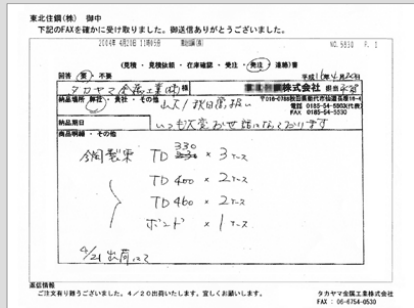 東北住鋼(株) 御中
下記のFAXを確かに受け取りました。御送信ありがとうございました。
2004年 4月20日 11時05分
NO.5830 P. 1
(見積・見積依頼・在庫確認・受注・発注・連絡)書
回答 要・不要 平成16年4月20日
タカヤマ金属工業(株)
鋼株式会社 担当
納品場所 弊社・貴社・その他
電話 0185-54-5580(代表)
FAX 0185-54-5530
納品期日 いつも大変お世話になっております
商品明細・その他
TD 330 × 3 ケース
TD 400 × 2 ケース
TD 460 × 2 ケース
ボンド × 1 ケース
4/21 出荷にて
返信情報
ご注文有り難うございました。4/20出荷いたします。宜しくお願いします。
タカヤマ金属工業株式会社
FAX : 06-6754-0530